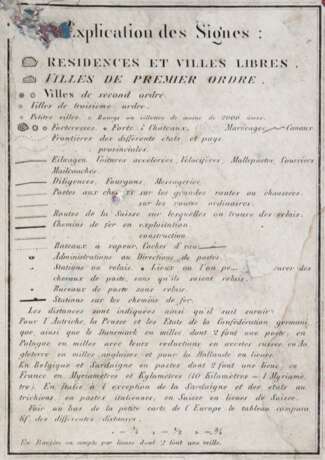 Explication des Signes :
RESIDENCES ET VILLES LIBRES .
VILLES DE PREMIER ORDRE .
Villes de second ordre.
Villes de troisième ordre.
Petites villes. Bourgs ou villettes de moins de 2000 âmes.
Forteresses. Forts & Châteaux. Marécages Canaux
Frontières des différents états et pays
provinciales.
Eilwagen, Voitures accelerées, Mallepostes, Courriers
Mallecouches
Diligences, Fourgons, Messageries
Postes aux sur les grandes routes ou chaussées
sur les routes ordinaires.
Routes de la Suisse sur lesquelles on trouve des relais.
Chemins de fer en exploitation
construction
Bateaux à vapeur, Coches d'eau
Administrations ou Directions de postes.
Stations ou relais. Lieux ou l'on se
chevaux de poste, sans qu'ils soient relais.
Bureaux de poste sans relais.
Stations sur les chemins de fer.
Les distances sont indiquées ainsi qu'il suit savoir
Pour l'Autriche, la Prusse et les Etats de la Confédération germani
que, ainsi que le Danemark en milles dont 2 font une poste; en
Pologne en milles avec leurs reductions en werstes russes, en An
gleterre en milles anglaises et pour la Hollande en lieues.
En Belgique et Sardaigne en postes dont 2 font une lieue, en
France en Myriamètres et Kylomètres (10 Kilomètres = 1 Myriamè
tre). En Italie à l'exception de la Sardaigne et des états au
trichiens, en postes italiennes, en Suisse en lieues de Suisse.
Voir au bas de la petite carte de l'Europe le tableau compara
tif des différentes distances.
En Bavière on compte par lieues dont 2 font une mille.